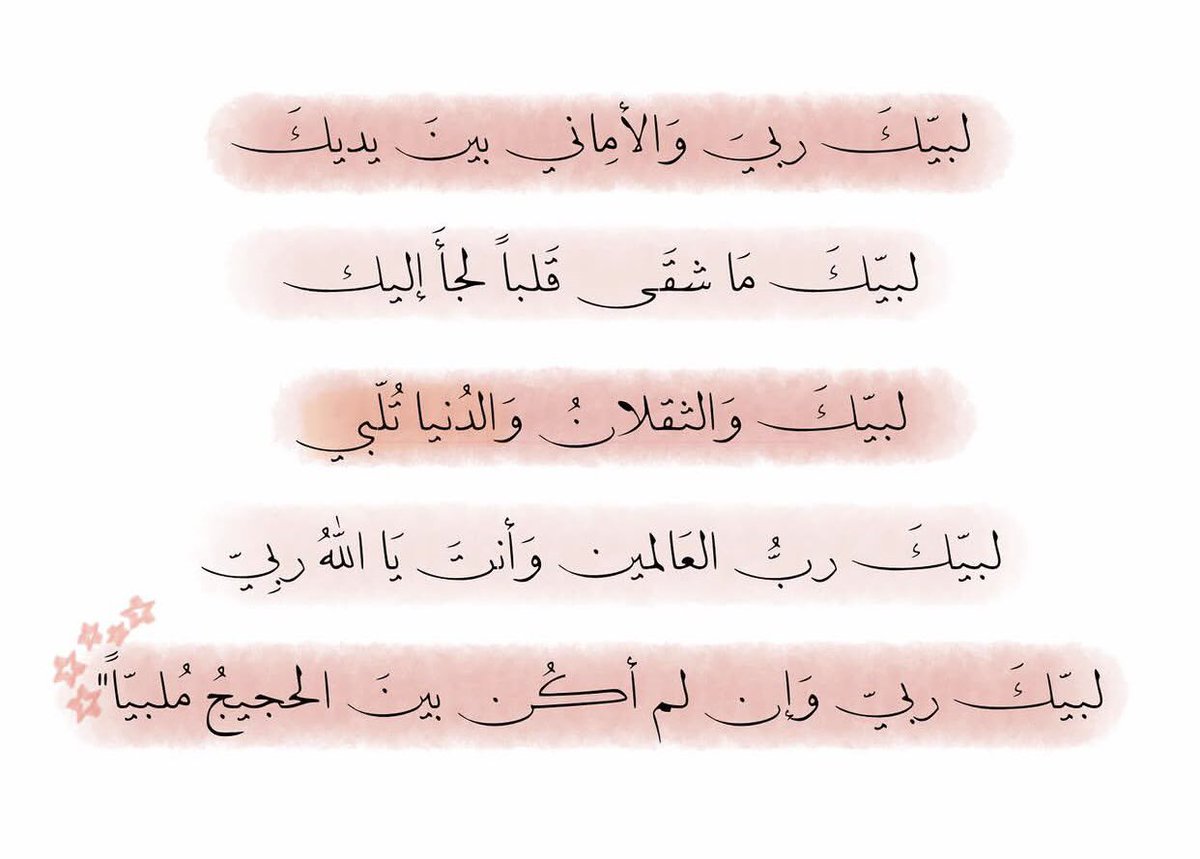 لبيّكَ ربيَ وَالأمِاني بينَ يديكَ
لبيّكَ مَا شقَى قَلباً لجأَ إليك
لبيّكَ وَالثقلانُ وَالدُنيا تُلّبي
لبيّكَ ربُّ العَالمين وَأنتَ يَا اللهُ ربِيّ
لبيّكَ ربيّ وَإن لم أكُن بينَ الحجيجُ مُلبيّاً"